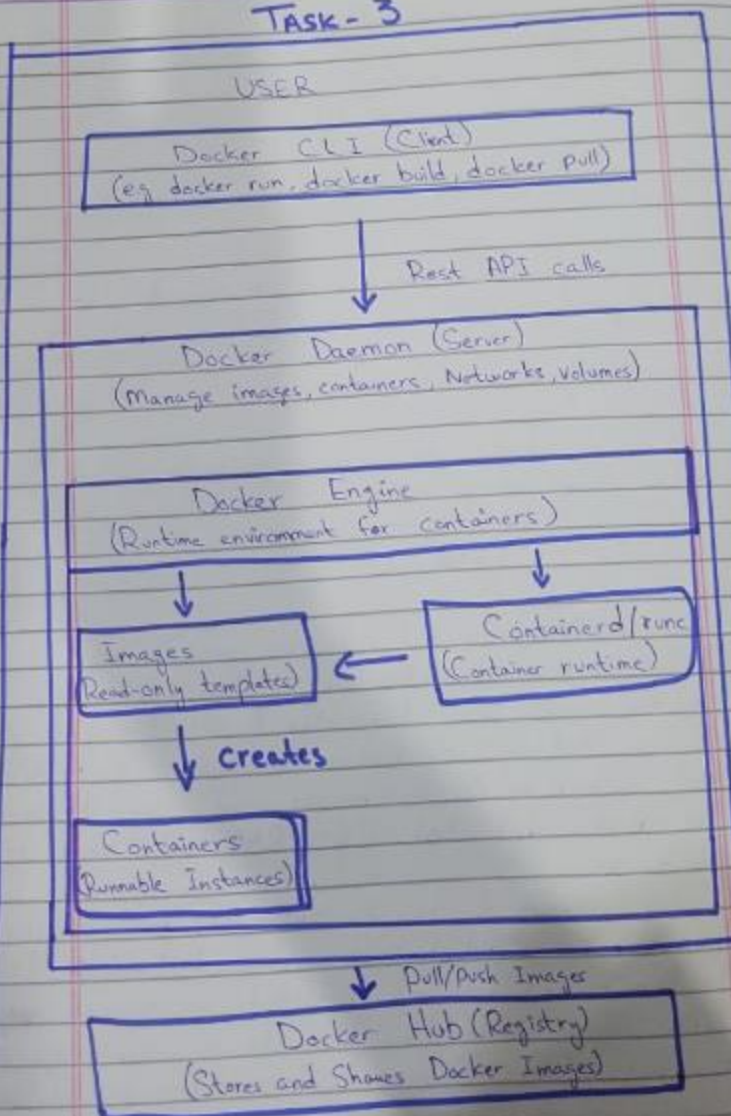 TASK - 3
USER
Docker CLI (Client)
(eg docker run, docker build, docker pull)
Rest API calls
Docker Daemon (Server)
(Manage images, containers, Networks, volumes)
Docker Engine
(Runtime environment for containers)
Images
(Read-only templates)
Containerd/runc
(Container runtime)
creates
Containers
(Runnable Instances)
Pull/Push Images
Docker Hub (Registry)
(Stores and Shares Docker Images)